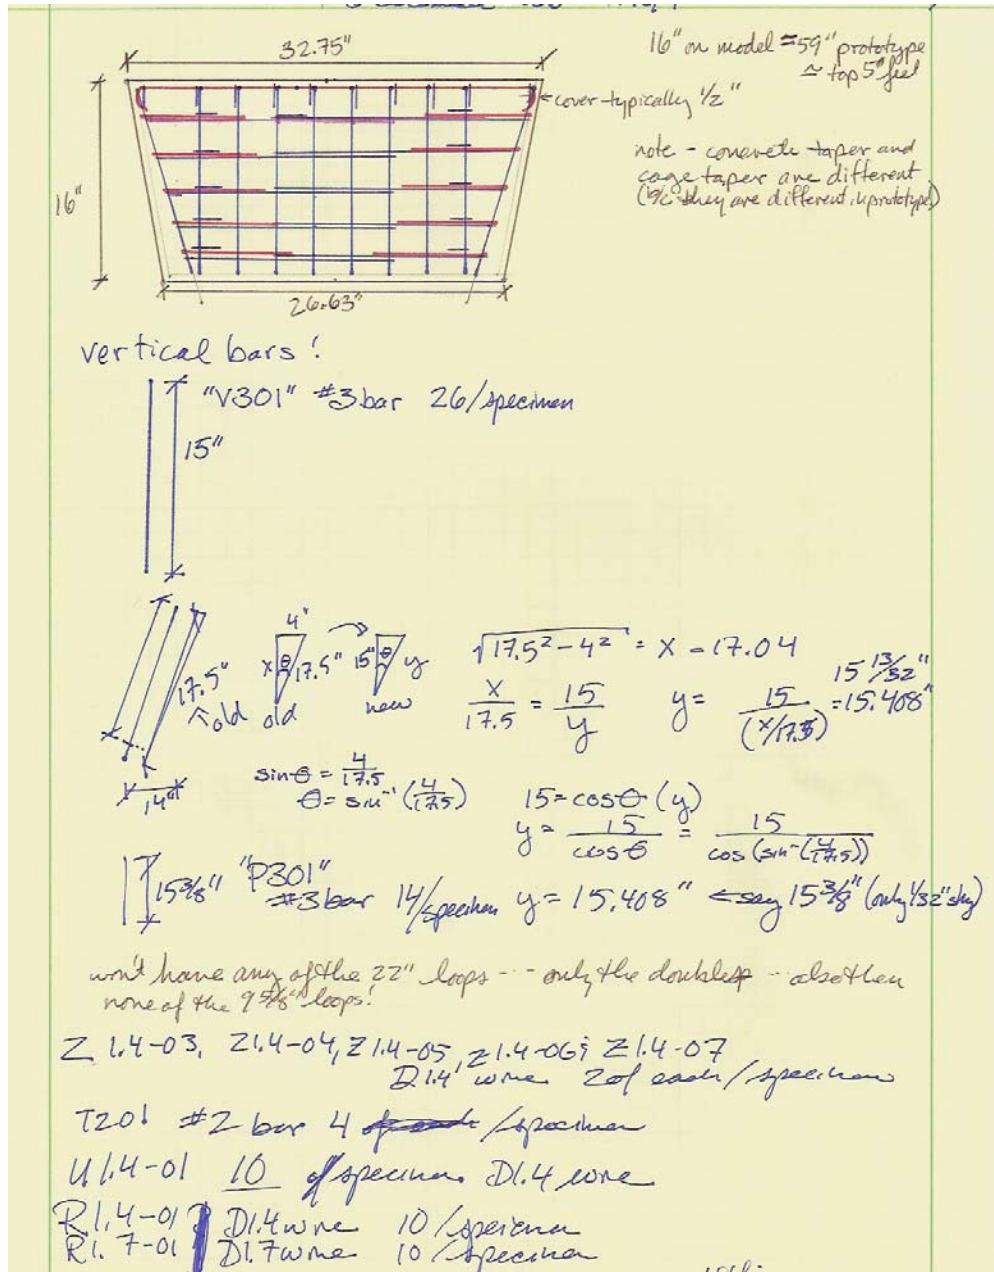 32.75"
16" on model ≈ 59" prototype
≃ top 5 feet
cover typically 1/2"
note - concrete taper and
cage taper are different
(b/c they are different in prototype)
16"
26.63"
vertical bars!
"V301" #3 bar 26/specimen
15"
4"
x θ 17.5" 15" θ y
17.5"
old old new
√17.5² - 4² = x = 17.04
15 13/32"
x/17.5 = 15/y y = 15/(x/17.5) = 15.408"
sinθ = 4/17.5
θ = sin⁻¹(4/17.5)
4"
15 = cosθ (y)
y = 15/cosθ = 15/cos(sin⁻¹(4/17.5))
15 3/8" "P301"
#3 bar 14/specimen y = 15.408" ← say 15 3/8" (only 1/32" shy)
won't have any of the 22" loops -- only the doubles -- also then
none of the 9 5/8" loops!
Z 1.4-03, Z1.4-04, Z1.4-05, Z1.4-06; Z1.4-07
D1.4 wire 2 of each/specimen
T201 #2 bar 4 /specimen
U1.4-01 10 /specimen D1.4 wire
R1.4-01 D1.4 wire 10/specimen
R1.7-01 D1.7 wire 10/specimen